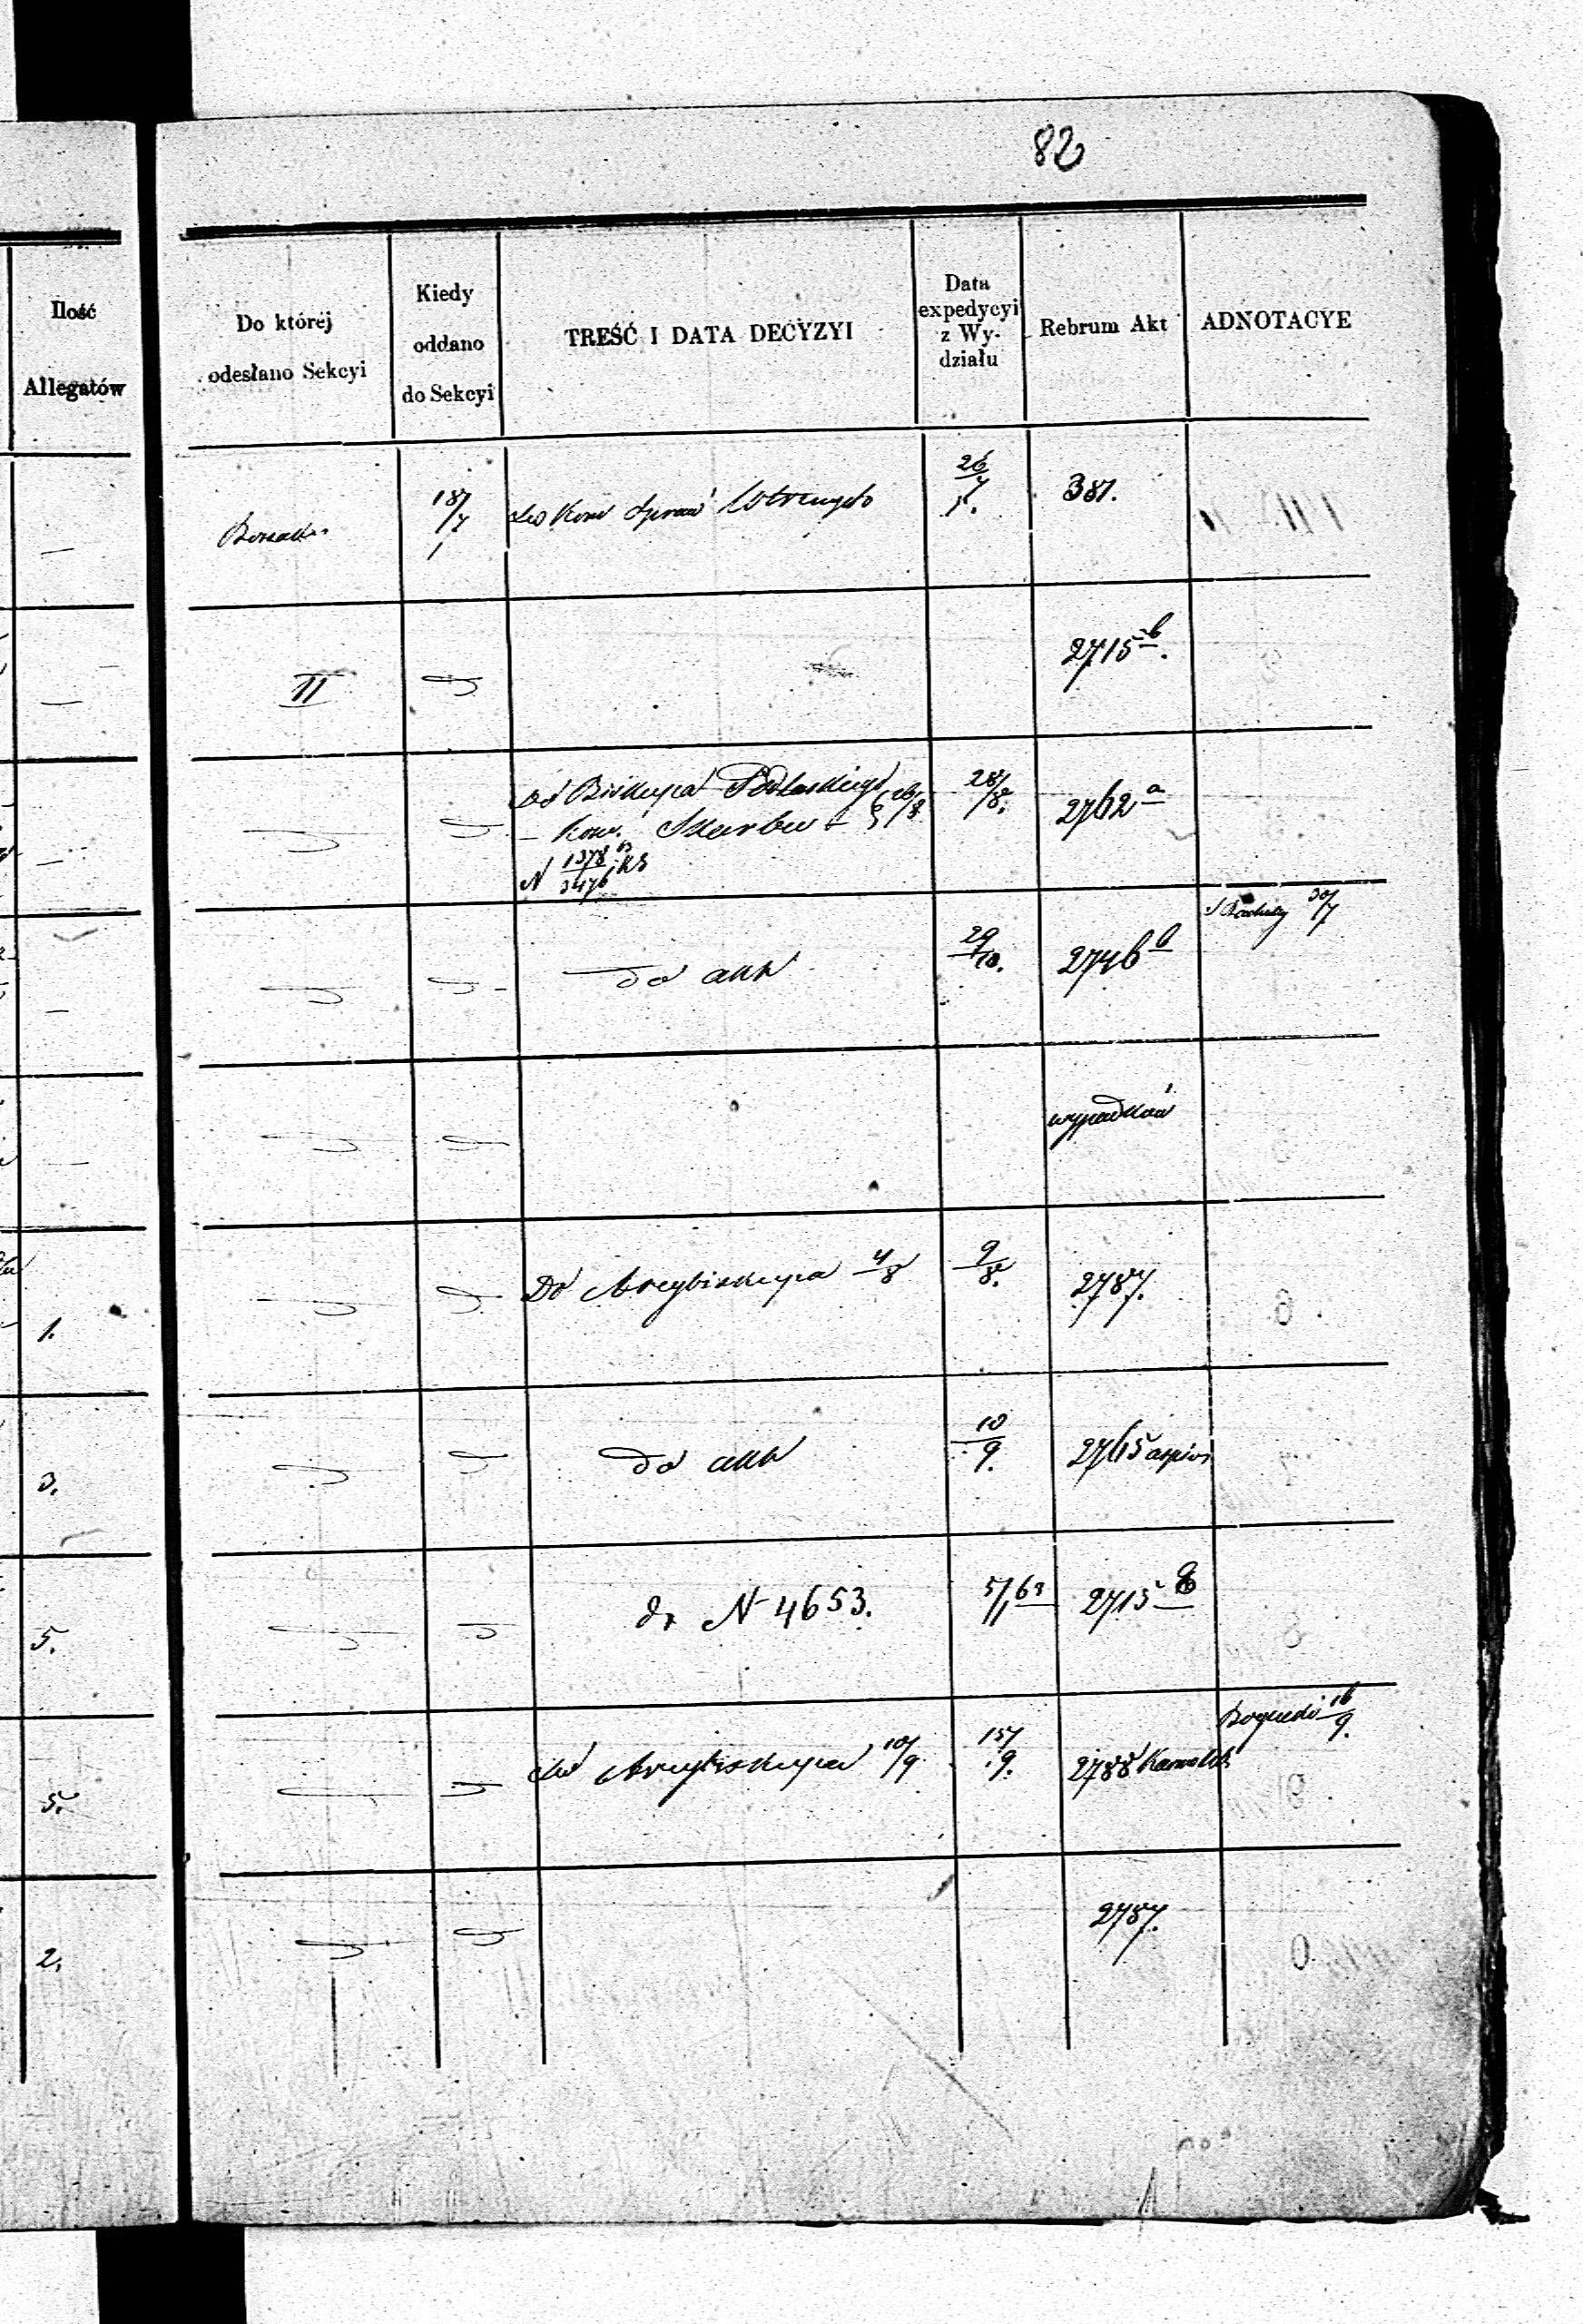 82
Ilość
Allegatów
Do której
odesłano Sekcyi
Kiedy
oddano
do Sekcyi
TREŚĆ I DATA DECYZYI
Data
expedycyi
z Wy-
działu
Rebrum Akt
ADNOTACYE
18/7 Do Kom Spraw 26/7 381.
II 2715 b.
Do Biskupa Podlaskiego 28/8. 2762 a
– Kom. Skarbu 26/8
N 1378/3476
do akt 29/10. 2746 b 30/7
wypadków
1. Do Arcybiskupa 4/8 9/8. 2787.
3. do akt 10/9. 2765
5. N 4653. 5/1 63 2715
5. Do Arcybiskupa 10/9 15/9. 2788 16/9.
2. 2787.